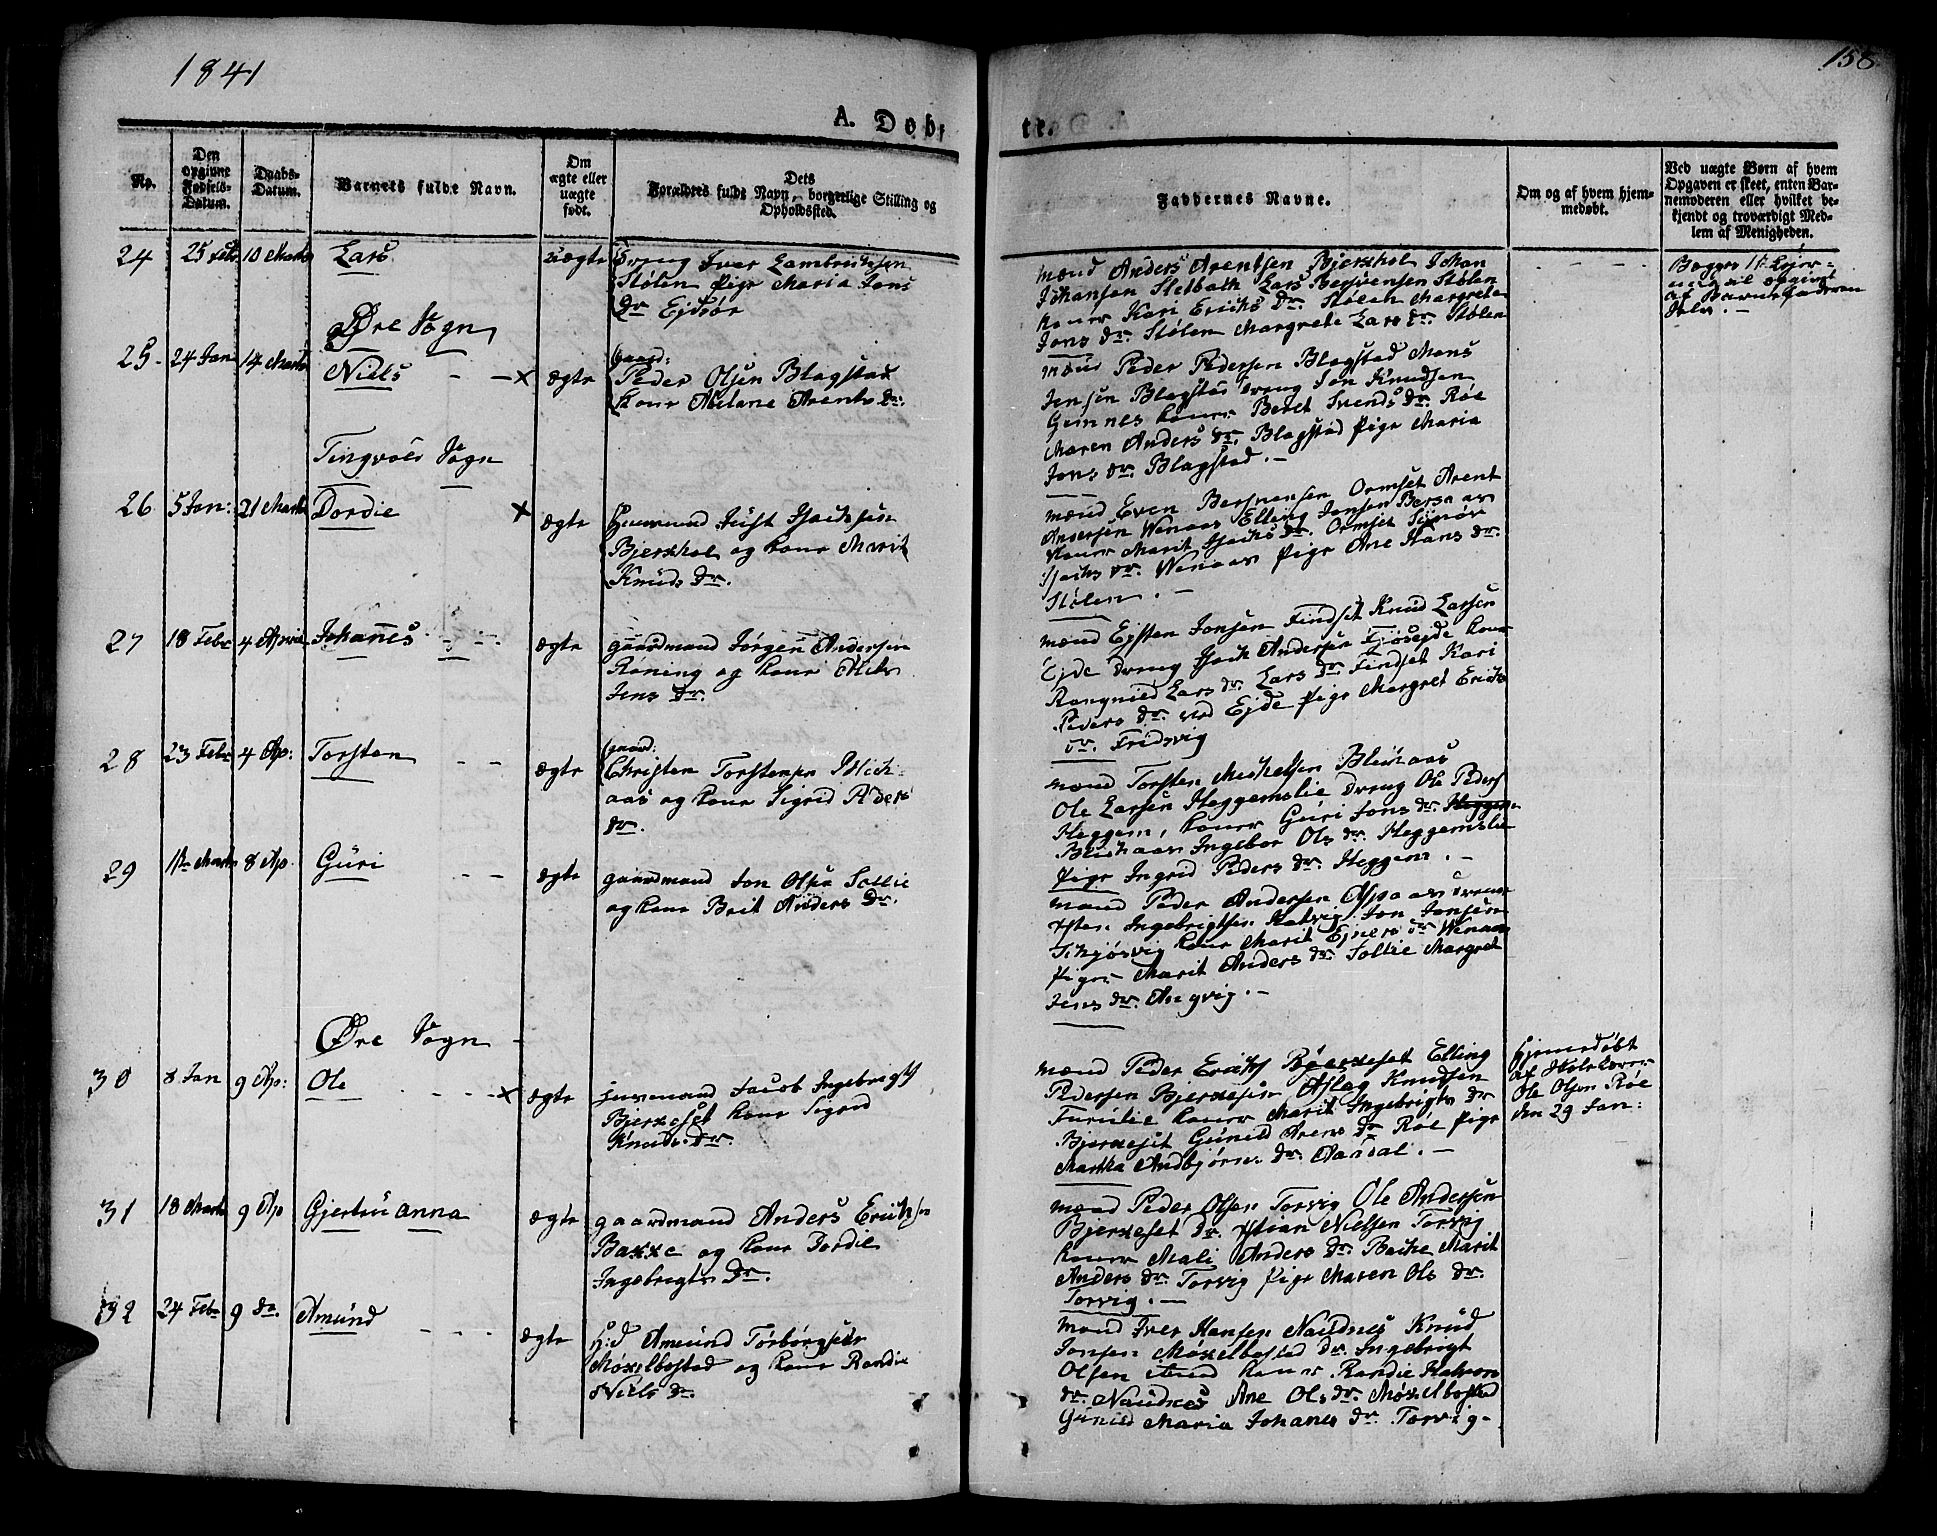 1841
158
A. Døbte.
No.
Den opgivne Fødsels-Datum.
Daabs-Datum.
Barnets fulde Navn.
Om ægte eller uægte født.
Dets Forældres fulde Navn, borgerlige Stilling og Opholdssted.
Faddernes Navne.
Om og af hvem hjemmedøbt.
Ved uægte Børn af hvem Opgaven er skeet, enten Barnemoderen eller hvilket bekjendt og troværdigt Medlem af Menigheden.
24 25 Febr 10 Marts Lars uægte
Dreng Iver Lambrichsen
Stølen Pige Maria Jons
Dr Ejdsør
Mænd Anders Arentsen Bjerkhol Johan
Johansen Lars
Koner Kari Erichs Dr. Stølen Margrete
Jons Dr. Stølen Margrete Lars Dr. Stølen
Begges 1te Lejer-
maal opgivet
af Barnefaderen
selv. -
Øre Sogn
25. 24 Jan 14 Marts Niels - - x ægte
Gaard:
Peder Olsen Blagstad
Kone Abelane Arents Dr.
Mænd Peder Pedersen Blagstad Mons
Jensen Blagstad Dreng Jon Knudsen
Gimnes Koner Beret Svends Dr. Røe
Maren Anders Dr. Blagstad Pige Maria
Jons Dr. Blagstad. -
Tingvold Sogn
26 5 Jan: 21 Marts Dordie x ægte
Huusmand Just
Bjerkhol og Kone Marit
Knuds Dr.
Mænd Even Ormset Arent
Andersen Wenaas Elling Jonsen
Koner Marit Dr. Ormset
Dr. Wenaas Pige Ane Hans Dr.
Stølen. -
27 18 Febr 4 April Johanes - - ægte
Gaardmand Jørgen Andersen
Koning og Kone
Jens Dr.
Mænd Ejsten Jonsen Findset Knud Larsen
Ejde Dreng Isach Andersen Kone
Rangnild Lars Dr. Lars Dr. Findset Kari
Peders Dr. ved Ejde Pige Margret Erichs
Dr. Fridsvig
28 23 Febr 4 Ap: Torsten - - ægte
Gaard:
Christen Torstensen
aas og Kone Sigrid Peders
Dr.
Mænd Torsten Michelsen
Ole Larsen Heggemslie Dreng Ole Peders
Heggem, Koner Guri Jons Dr.
Ingebor Ols Dr. Heggemslie
Pige Ingrid Peders Dr. Heggem. -
29 11te Marts 8 Ap. Guri - - ægte
Gaardmand Jon Olsen Sollie
og Kone Brit Anders Dr.
Mænd Peder Andersen Aspaas Dreng
Ingebrigtsen Jon Jonsen
Kone Marit Ejners Dr. Wenaas
Pige Marit Anders Dr. Sollie Margret
Jens Dr. Angvig. -
Øre Sogn -
30 8 Jan 9 Ap: Ole - - - x ægte
Huusmand Jacob Ingebrigts
Bjerkeset Kone Sigrid
Knuds Dr
Mænd Peder Erichs Bjerkeset Elling
Pedersen Bjerkeset Aslag Knudsen
Furulie Koner Marit Ingebrigts Dr
Bjerkeset Gunild Arens Dr Røe Pige
Martha Andbjørns Dr. Aandal. -
Hjemedøbt
af Skolelærer
Ole Olsen Røe
den 29 Jan:
31 18 Marts 9 Ap Gjertru Anna ægte
Gaardmand Anders Erichsen
Bakke og Kone Dordie
Ingebrigts Dr.
Mænd Peder Olsen Torvig Ole Andersen
Bjerkeset Dr. Stian Nielsen Torvig
Koner Mali Anders Dr. Bakke Marit
Anders Dr. Torvig Pige Maren Ols Dr.
Torvig. -
32 24 Febr 9 Do. Amund - - - ægte
H:d Amund Torborgsen
Møkelbostad og Kone Randie
Niels Dr
Mænd Iver Hansen Naudnes Knud
Jonsen Møkelbostad Dr. Ingebrigt
Olsen Koner Randie Halvors
Dr. Naudnes Ane Ols Dr. Møkelbostad
Gunild Maria Johanes Dr. Torvig-